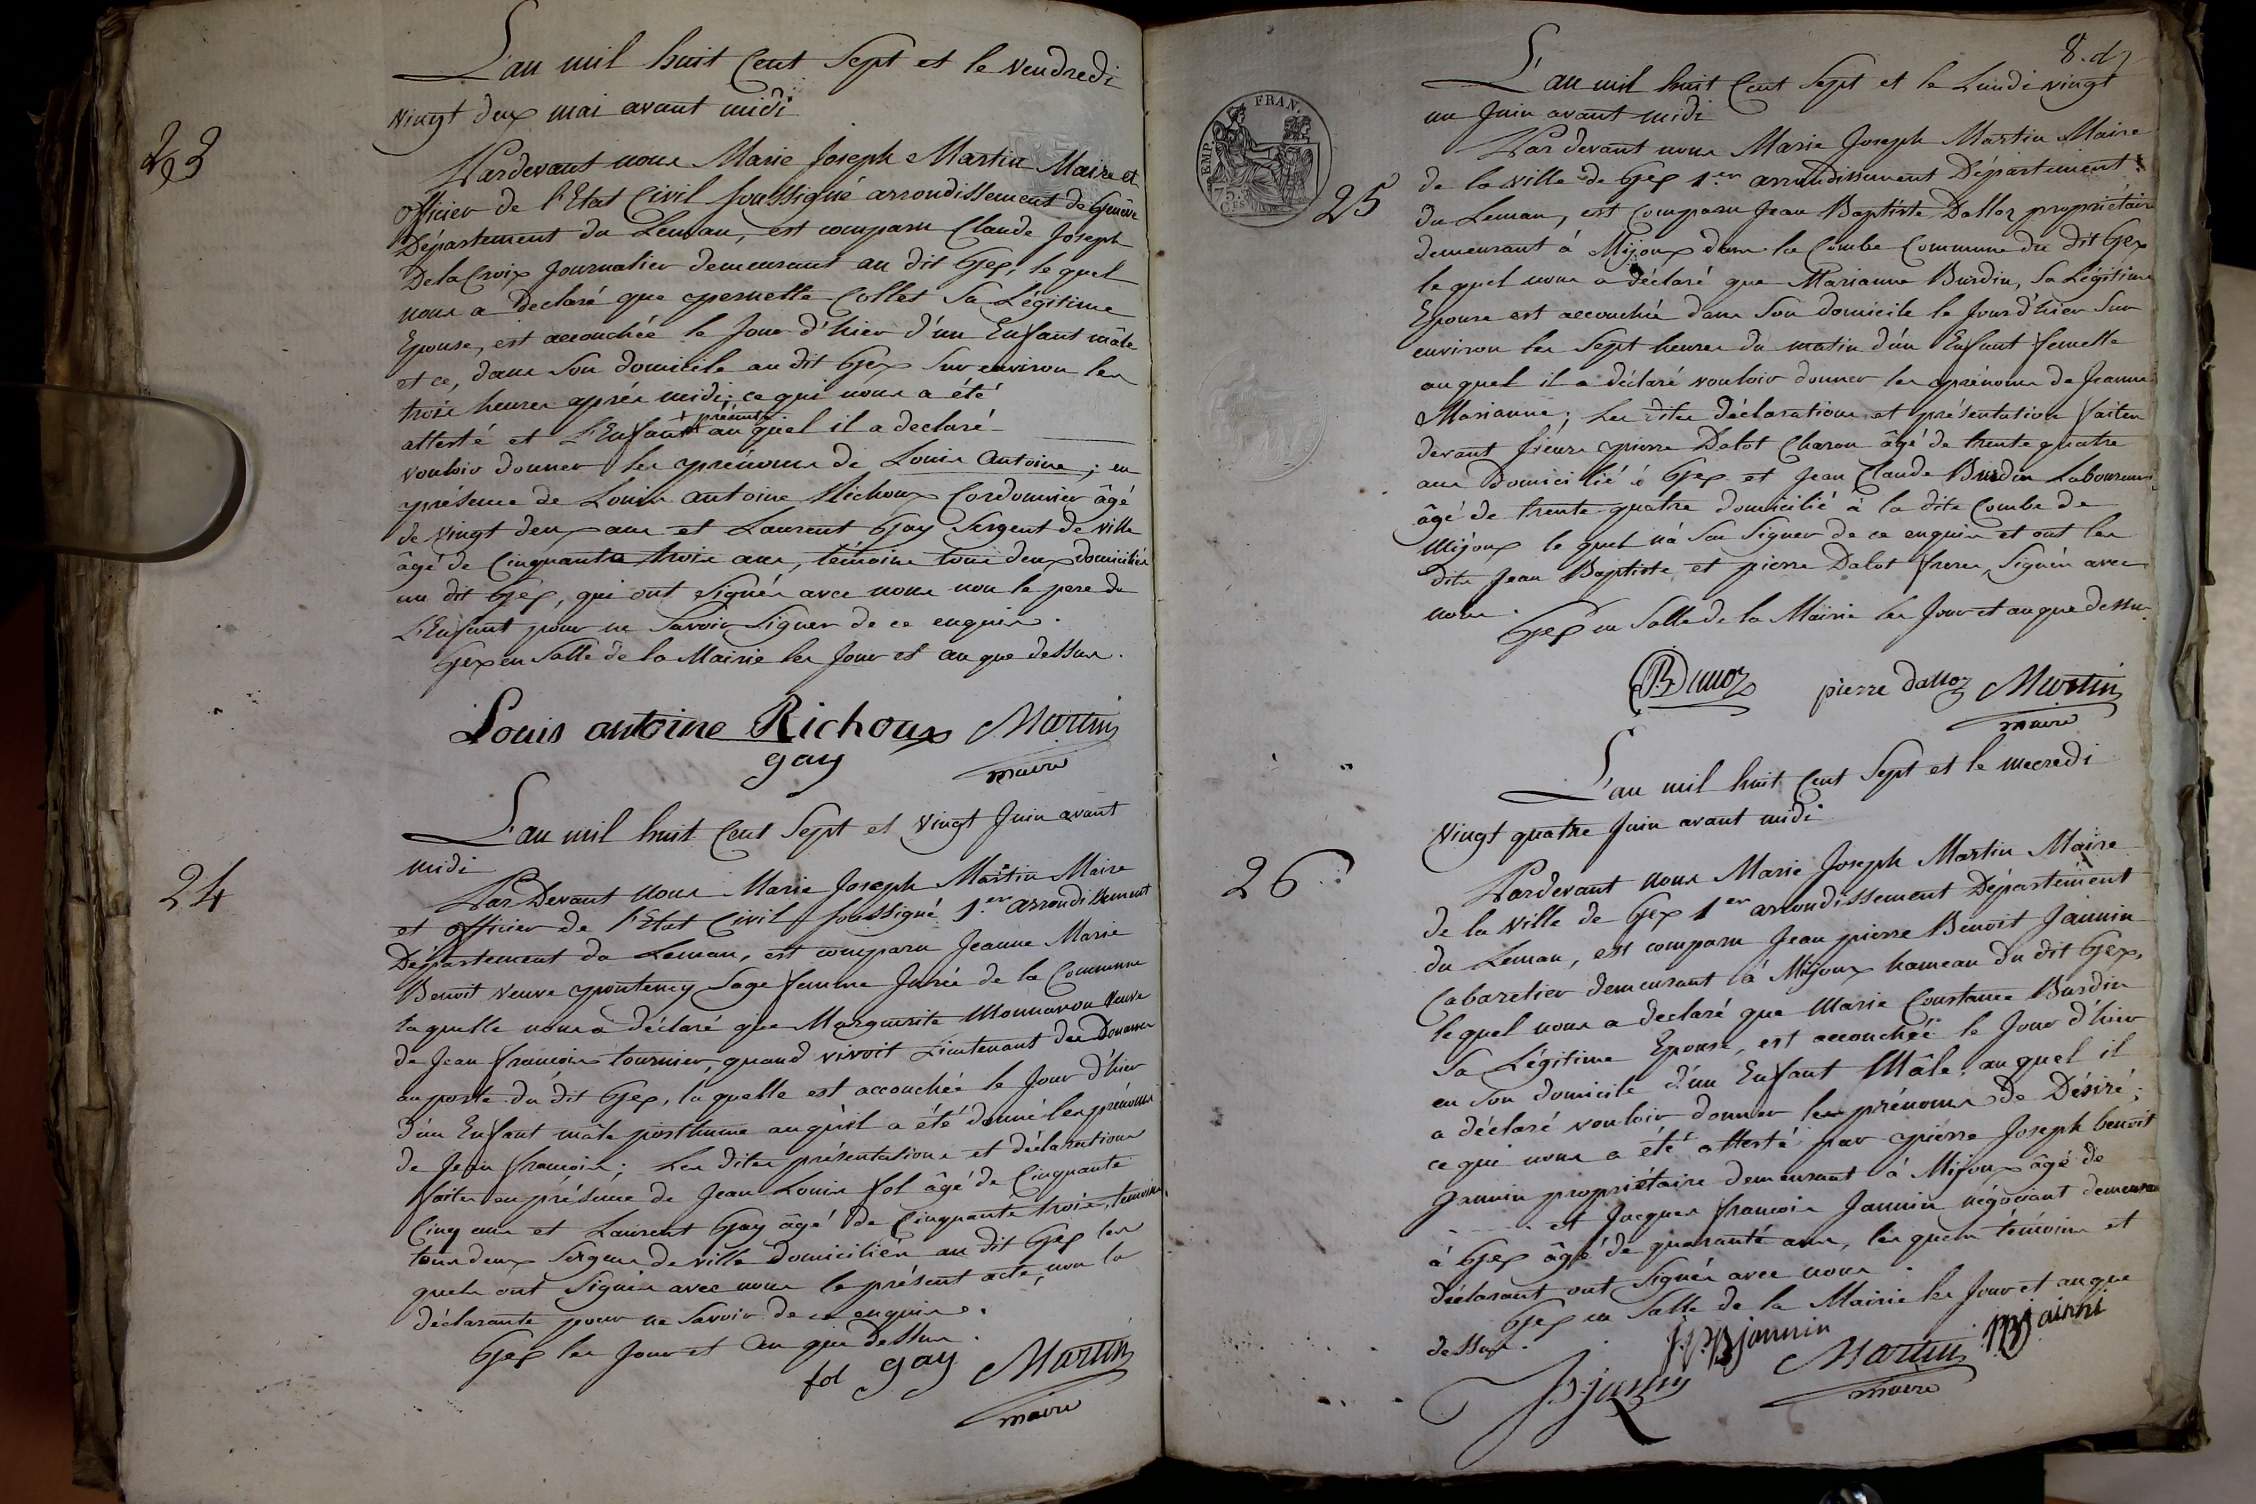 L'an mil huit Cent Sept et le Vendredi
vingt deux mai avant midi
23
Pardevant nous Marie Joseph Martin Maire et
officier de l'Etat Civil soussigné arrondissement de Genève
Département du Leman, est comparu Claude Joseph
De la Croix Journalier demeurant au dit Gex, le quel
nous a declaré que pernette Collet Sa Légitime
Epouse, est accouchée le Jour d'hier d'un Enfant mâle
et ce, dans Son domicile au dit Gex Sur environ les
trois heures après midi; ce qui nous a été
attesté et L'Enfant présenté au quel il a declaré
vouloir donner les prénoms de Louis Antoine; en
présence de Louis Antoine Richoux Cordonnier âgé
de vingt deux ans et Laurent Gay Sergent de ville
âgé de Cinquante trois ans, témoins tous deux domiciliés
au dit Gex, qui ont Signés avec nous non le pere de
L'Enfant pour ne Savoir Signer de ce enquis.
Gex en Salle de la Mairie les Jour et an que dessus.
Louis antoine Richoux Martin
gay maire
L'an mil huit Cent Sept et vingt Juin avant
midi
24
Par Devant nous Marie Joseph Martin Maire
et officier de l'Etat Civil soussigné 1.er arrondissement
Département du Leman, est comparu Jeanne Marie
Benoit veuve pontency Sage femme Jurée de la Commune
laquelle nous a déclaré que Marguerite Monnavon veuve
de Jean francois tournier, quand vivoit Lieutenant des Douannes
au poste du dit Gex, la quelle est accouchée le Jour d'hier
d'un Enfant mâle posthume auquel il a été donné les prénoms
de Jean francois; Les dites présentations et déclarations
faites en présence de Jean Louis fol âgé de Cinquante
Cinq ans et Laurent Gay âgé de Cinquante trois, temoins
tous deux Sergens de ville domiciliés au dit Gex les
quels ont Signés avec nous le présent acte, non la
déclarante pour ne Savoir de ce enquise.
Gex les Jour et an que dessus.
fol gay Martin
maire
8.
L'an mil huit Cent Sept et le Lundi vingt
un Juin avant midi
EMP. FRAN.
75.
25
Par devant nous Marie Joseph Martin Maire
de la ville de Gex 1.er arrondissement Département
du Leman, est comparu Jean Baptiste Dalloz propriétaire
demeurant à Mijoux dans la Combe Commune du dit Gex
lequel nous a déclaré que Marianne Burdin, Sa Légitime
Epouse est accouchée dans Son domicile le Jour d'hier Sur
environ les Sept heures du matin d'un Enfant femelle
au quel il a déclaré vouloir donner les prénoms de Jeanne
Marianne; Les dites déclarations et présentation faites
devant Sieurs pierre Dalot Charon âgé de trente quatre
ans Domicilié à Gex et Jean Claude Burdin Laboureur
âgé de trente quatre domicilié à la dite Combe de
Mijoux le quel n'a Su Signer de ce enquis et ont les
dits Jean Baptiste et pierre Dalot freres, Signés avec
nous.
Gex en Salle de la Mairie les Jour et an que dessus.
pierre dalloz Martin
maire
L'an mil huit Cent Sept et le mecredi
vingt quatre Juin avant midi
26
Pardevant nous Marie Joseph Martin Maire
de la ville de Gex 1er arrondissement Département
du Leman, est comparu Jean pierre Benoit Jannin
Cabaretier demeurant à Mijoux hameau du dit Gex,
lequel nous a declaré que Marie Constance Burdin
Sa Légitime Epouse, est accouchée le Jour d'hier
en Son domicile d'un Enfant Mâle, au quel il
a déclaré vouloir donner les prénoms de Désiré;
ce qui nous a été attesté par pierre Joseph benoit
Jannin propriétaire demeurant à Mijoux âgé de
et Jacques francois Jannin négociant demeurant
à Gex âgé de quarante ans, les quels témoins et
déclarant ont Signés avec nous.
Gex en Salle de la Mairie les Jour et an que
dessus.
J.p.B Jannin
Martin
maire